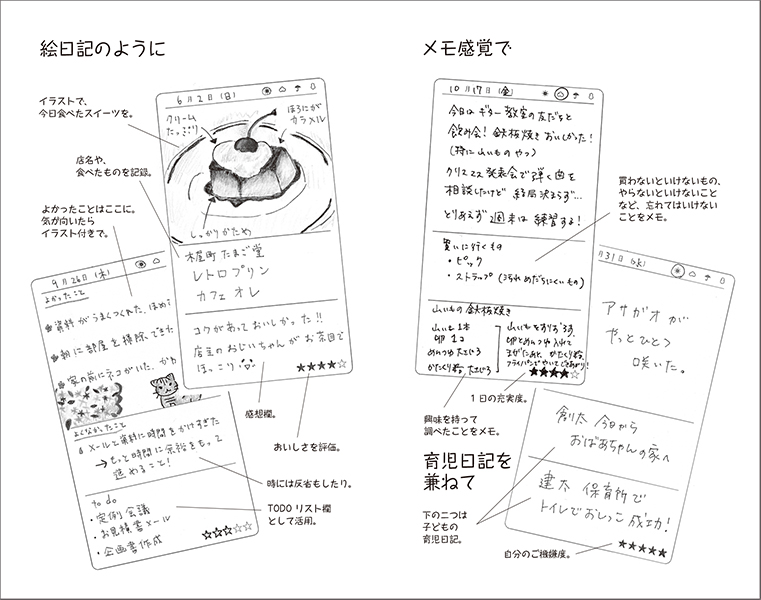 絵日記のように
イラストで、
今日食べたスイーツを。
店名や、
食べたものを記録。
よかったことはここに。
気が向いたら
イラスト付きで。
6月2日(日)
クリーム
たっぷり
ほろにが
カラメル
しっかりかため
木屋町 たまご堂
レトロプリン
カフェオレ
コクがあっておいしかった!!
店主のおじいちゃんがお茶目で
ほっこり
★★★★☆
感想欄。
おいしさを評価。
9月26日(木)
よかったこと
資料がうまくつくれた。ほめ
朝に部屋を掃除できた
家の前にネコがいた。
よくなかったこと
メールと資料に時間をかけすぎた
→もっと時間に余裕をもって
進めること!
to do
・定例会議
・お見積書メール
・企画書作成
☆☆☆☆☆
時には反省もしたり。
TODOリスト欄
として活用。
メモ感覚で
10月17日(金)
今日はギター教室の友だちと
飲み会!鉄板焼きおいしかった!
(特に山いものやつ)
クリスマス発表会で弾く曲を
相談したけど 結局決まらず…
とりあえず週末は練習するよ!
買いに行くもの
・ピック
・ストラップ(汚れめだちにくいもの)
山いもの鉄板焼き
山いも1本
卵1コ
めんつゆ 大さじ3
かたくり粉 大さじ3
山いもをすりおろす。
卵とめんつゆ入れて
まぜたあと、かたくり粉。
フライパンでやいてできあがり!
★★★★☆
買わないといけないもの、
やらないといけないこと
など、忘れてはいけない
ことをメモ。
1日の充実度。
興味を持って
調べたことをメモ。
育児日記を
兼ねて
下の二つは
子どもの
育児日記。
月31日(水)
アサガオが
やっとひとつ
咲いた。
創太 今日から
おばあちゃんの家へ
建太 保育所で
トイレでおしっこ成功!
★★★★★
自分のご機嫌度。